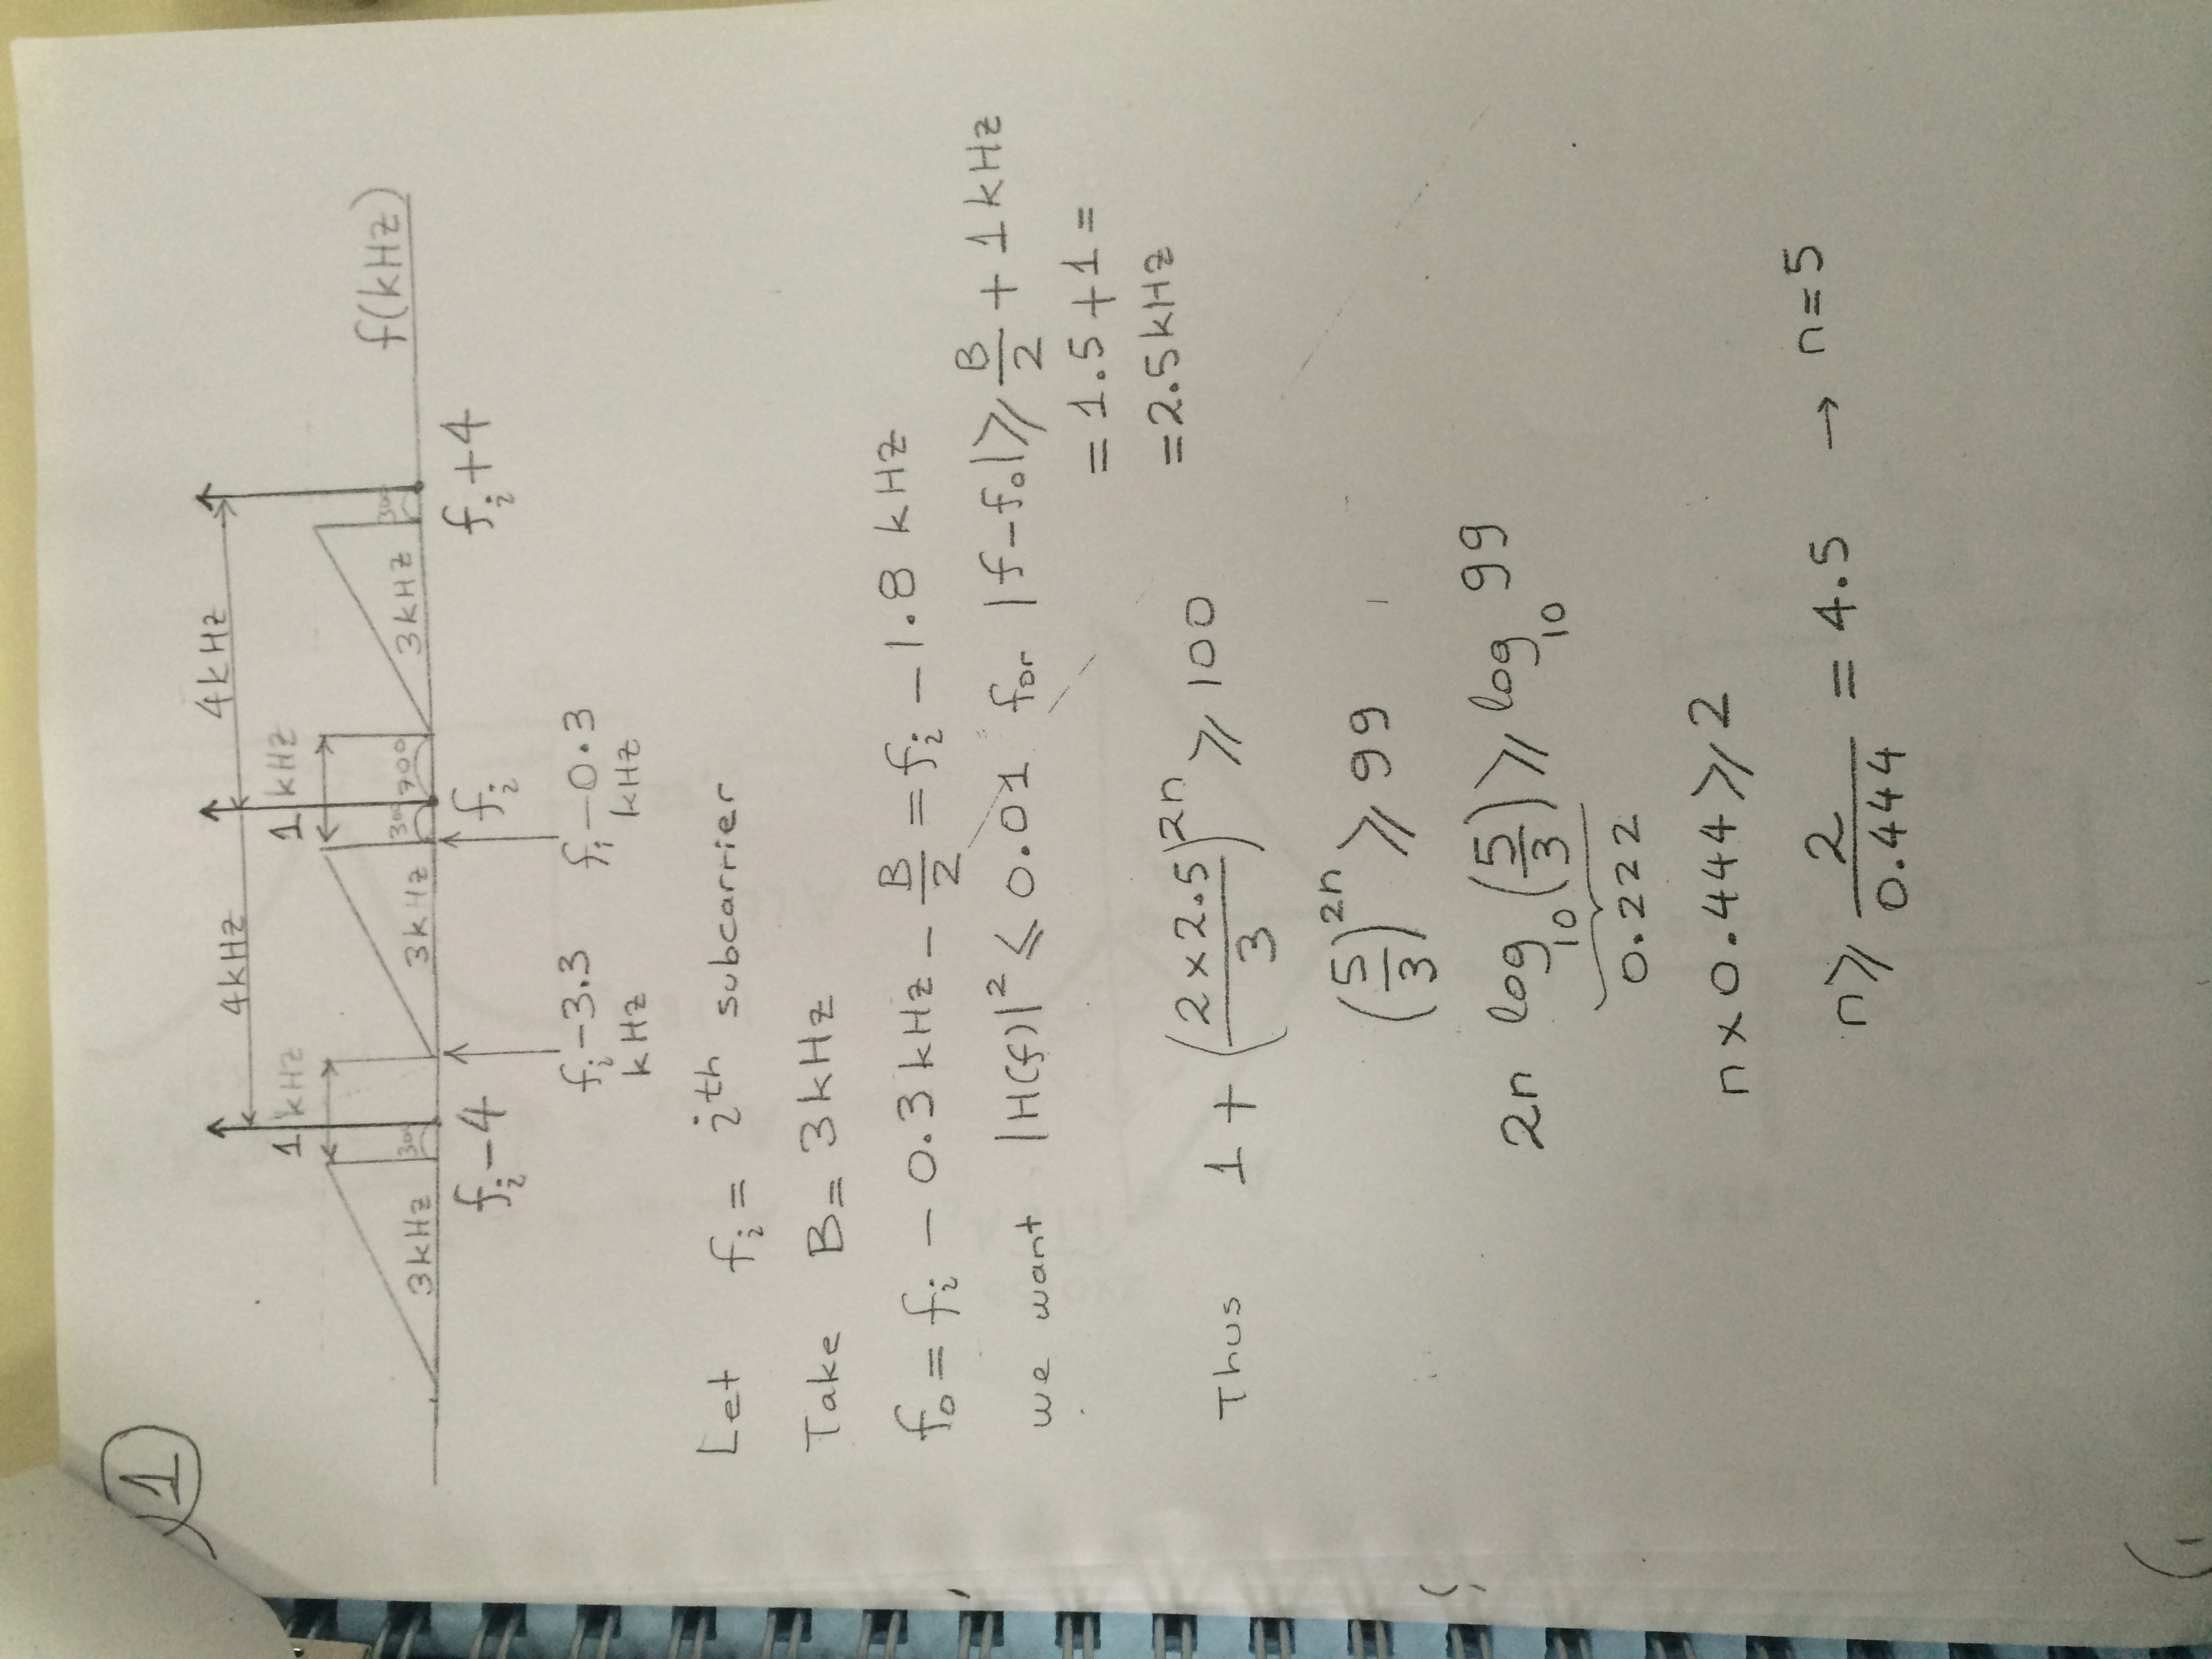 1
4kHz 4kHz
1 kHz 1 kHz
3kHz 300 3kHz 300 700 3kHz 300 f(kHz)
fᵢ-4 fᵢ fᵢ+4
fᵢ-3.3 kHz fᵢ-0.3 kHz
Let fᵢ = iᵗʰ subcarrier
Take B= 3kHz
f₀ = fᵢ - 0.3 kHz - B/2 = fᵢ - 1.8 kHz
we want |H(f)|² ⩽ 0.01 for |f-f₀| ⩾ B/2 + 1 kHz
= 1.5 + 1 =
= 2.5kHz
Thus 1 + (2×2.5/3)²ⁿ ⩾ 100
(5/3)²ⁿ ⩾ 99
2n log₁₀(5/3) ⩾ log₁₀ 99
0.222
n×0.444 ⩾ 2
n ⩾ 2/0.444 = 4.5 → n=5